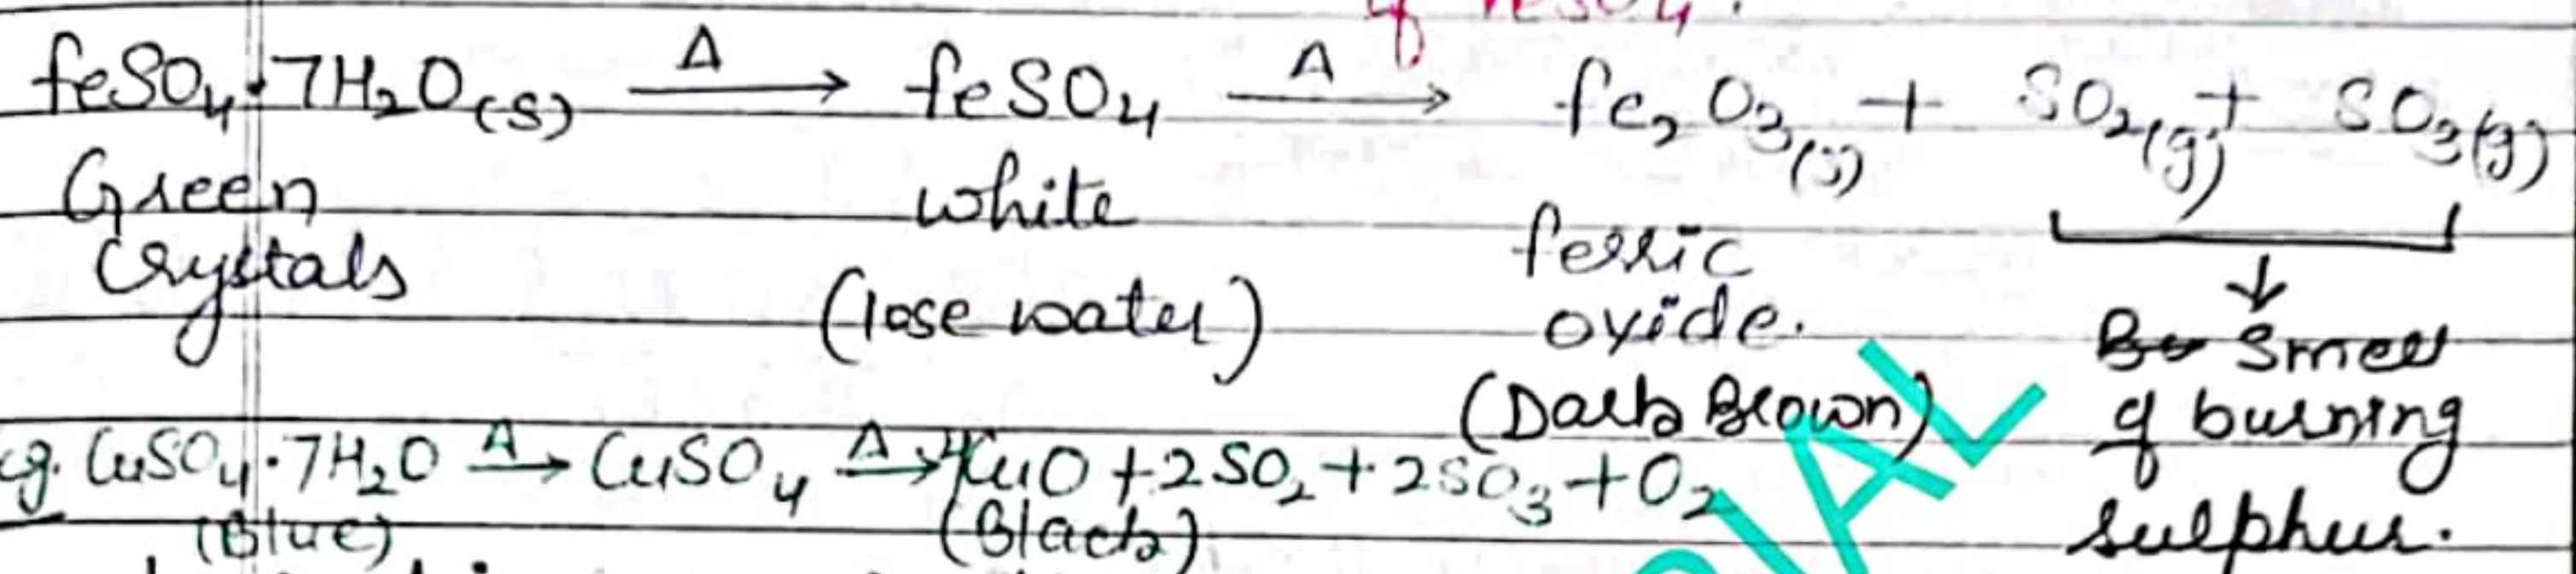 of FeSO4.
FeSO4·7H2O(s) Δ→ FeSO4 Δ→ Fe2O3(s) + SO2(g) + SO3(g)
Green white
Crystals ferric
(lose water) oxide. ↓
(Dark Brown) Smell
of burning
sulphur.
eg. CuSO4·7H2O Δ→ CuSO4 Δ→ 4CuO + 2SO2 + 2SO3 + O2
(Blue) (Black)
IAL